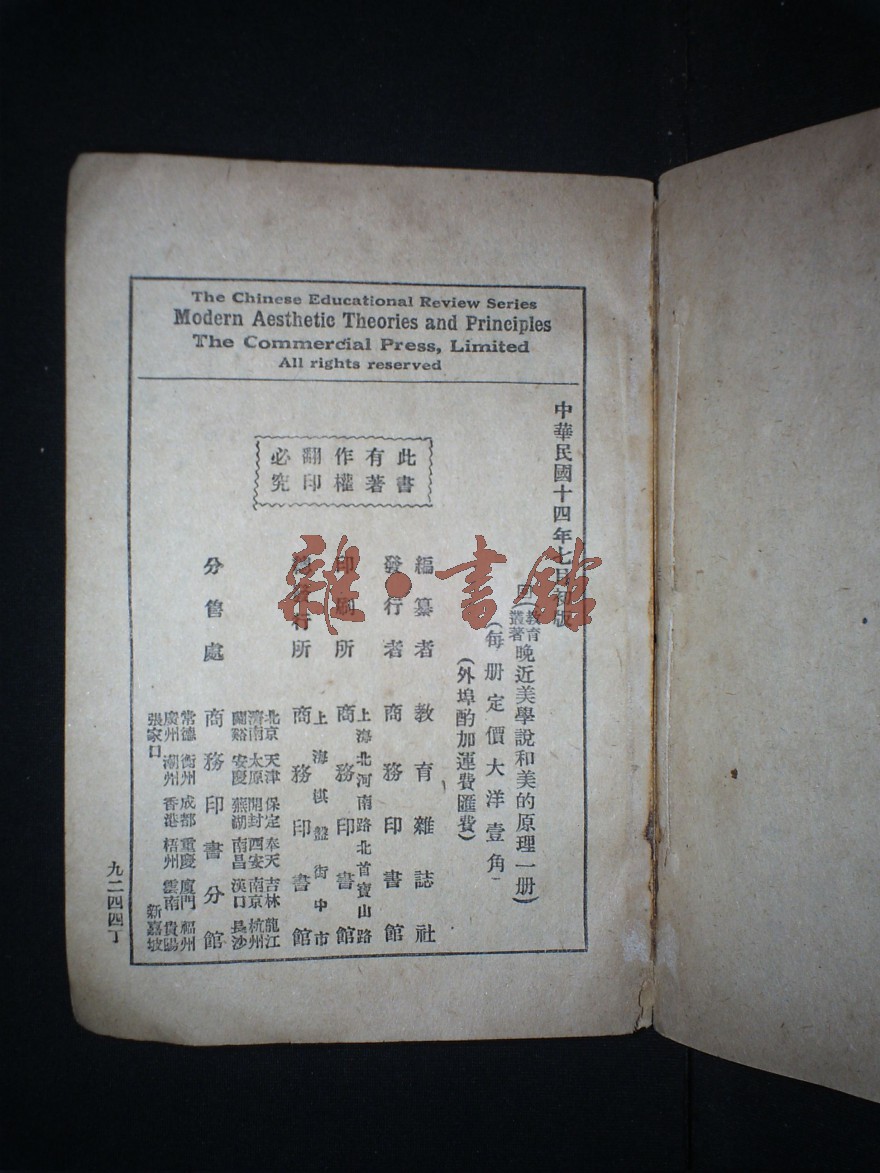 The Chinese Educational Review Series
Modern Aesthetic Theories and Principles
The Commercial Press, Limited
All rights reserved
中華民國十四年七月初版
教育叢著
晚近美學說和美的原理一册)
(每册定價大洋壹角
(外埠酌加運費匯費)
此書
有著
作權
翻印
必究
編纂者 教育雜誌社
發行者 商務印書館
上海北河南路北首寶山路
印刷所 商務印書館
上海棋盤街中市
發行所 商務印書館
北京 天津 保定 奉天 吉林 龍江
濟南 太原 開封 西安 南京 杭州
蘭谿 安慶 蕪湖 南昌 漢口 長沙
分售處 商務印書分館
常德 衡州 成都 重慶 廈門 福州
廣州 潮州 香港 梧州 雲南 貴陽
張家口 新嘉坡
九二四四丁
雜·書館